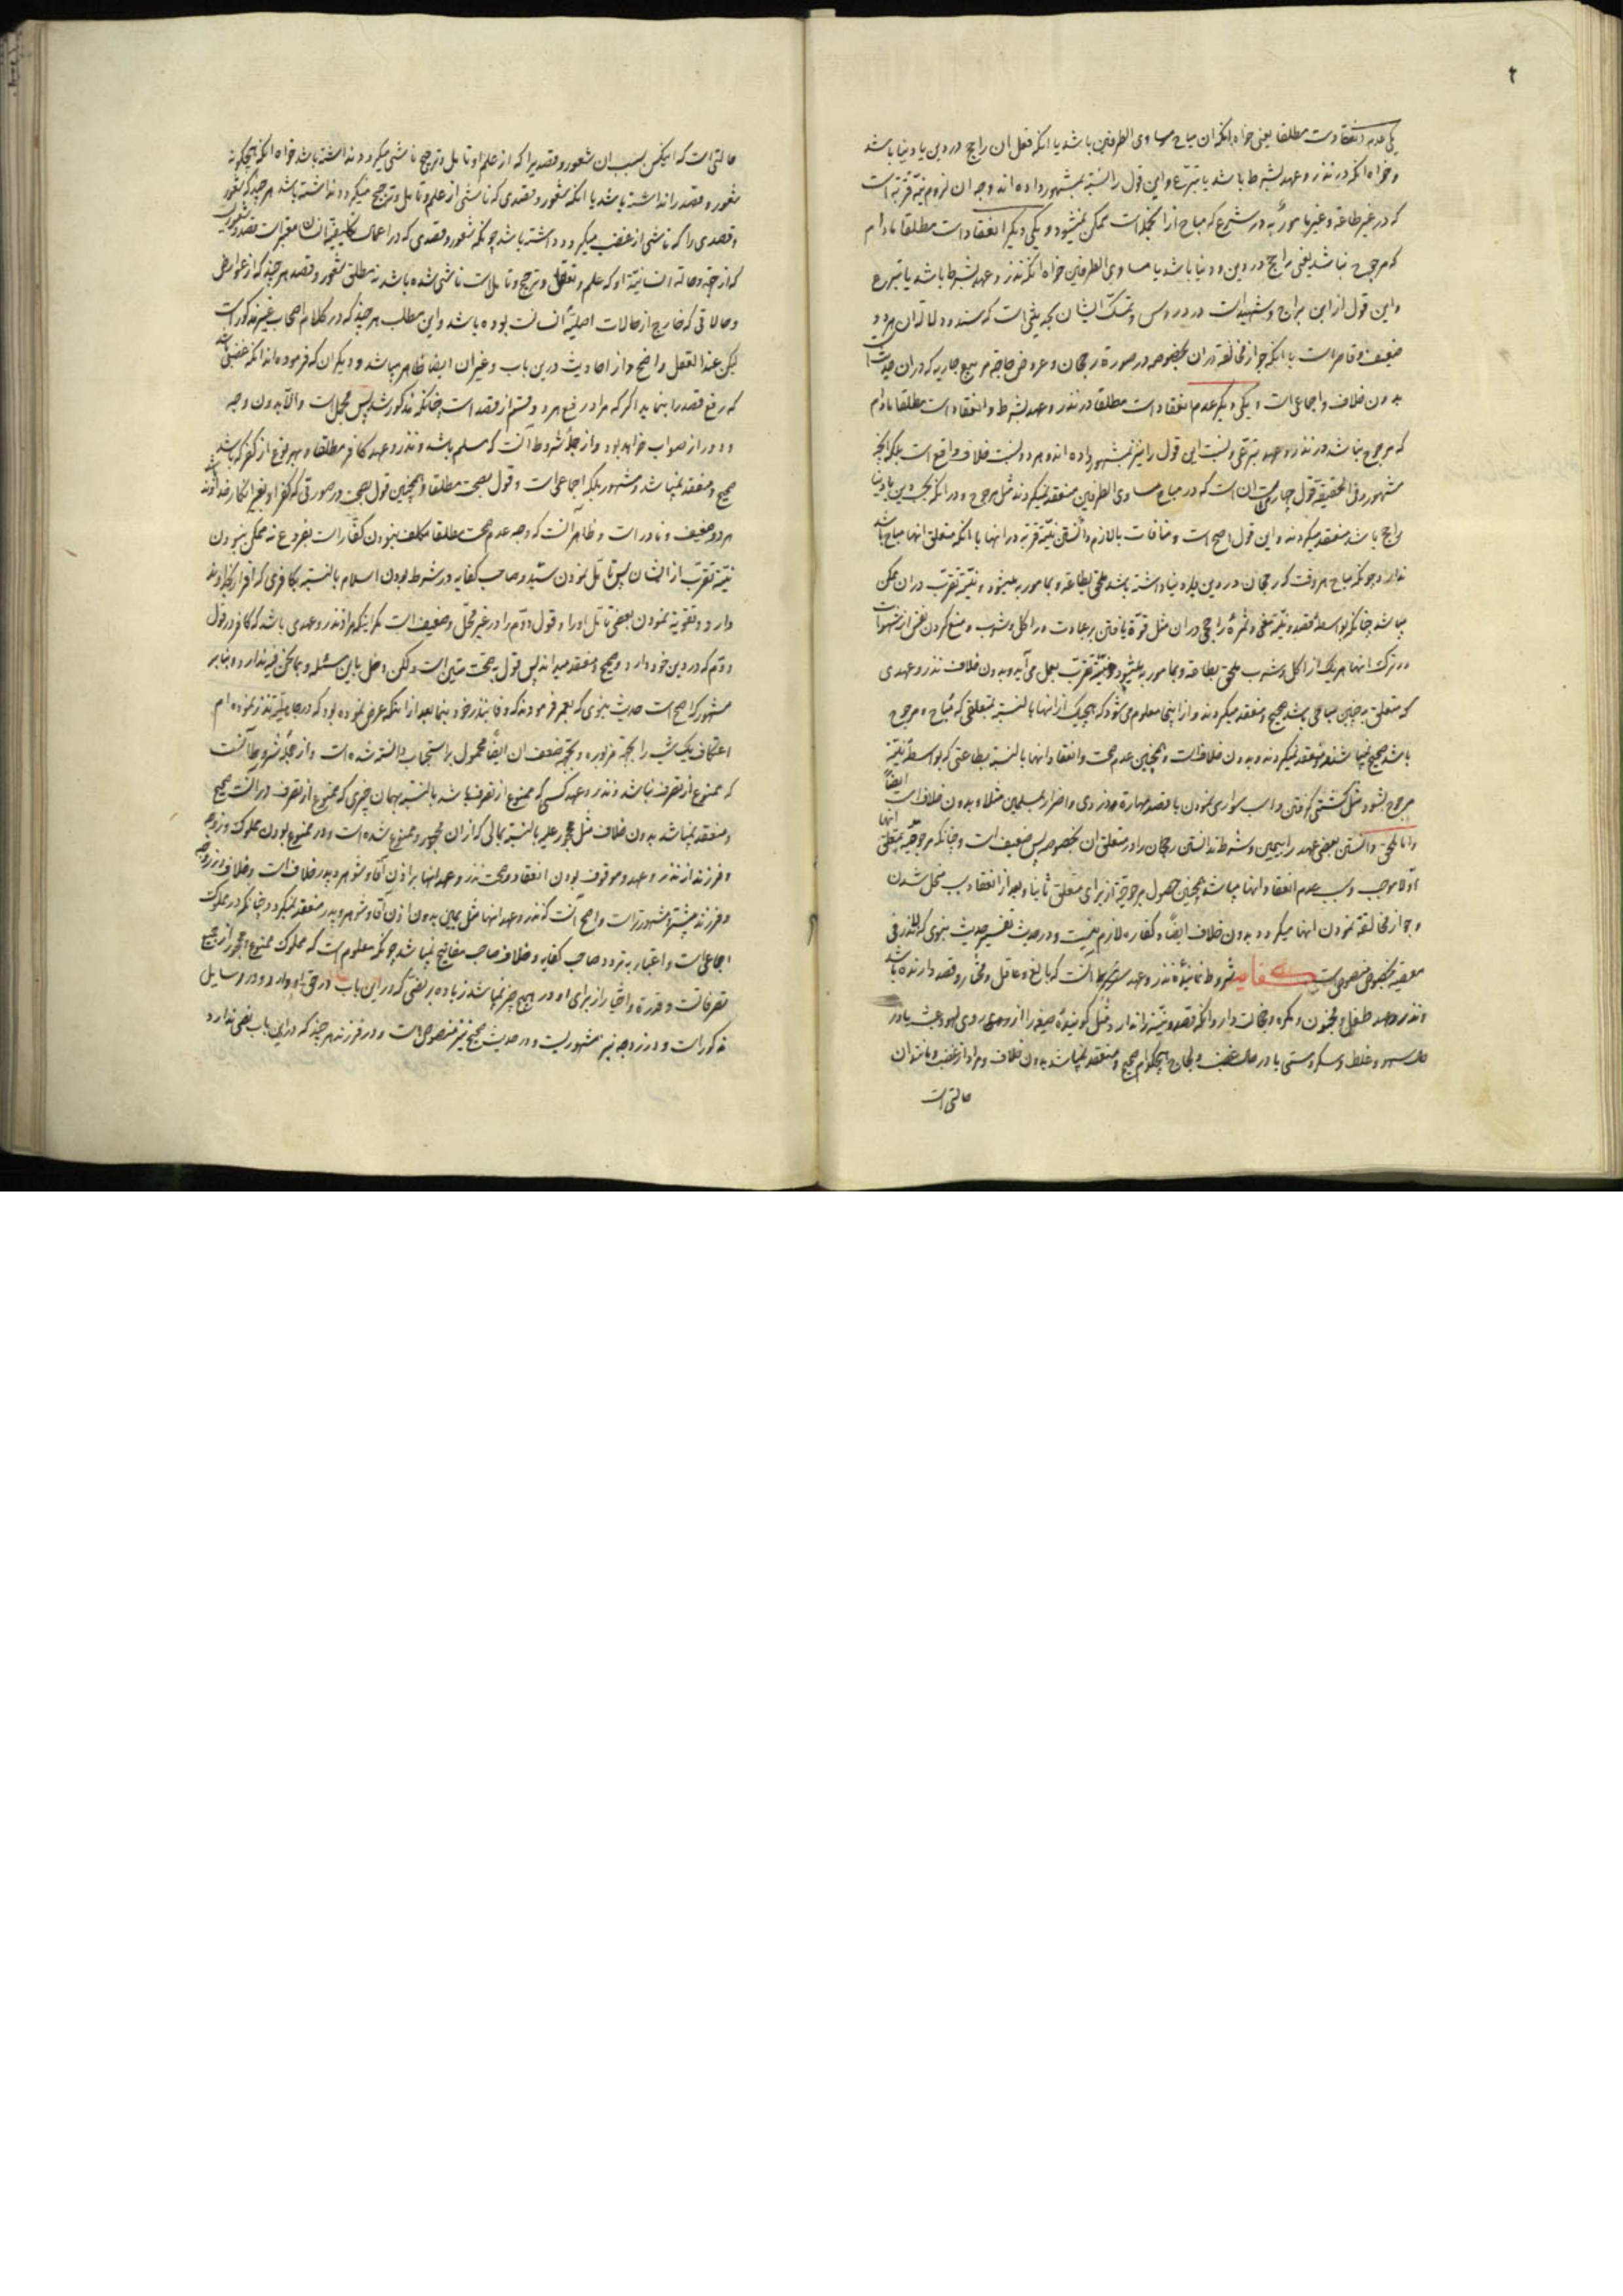 ۲
یکی عدم انعقادست مطلقا یعنی خواه آنکه آن مباح مساوی الطرفین باشد یا آنکه فعل آن راجح در دین یا دنیا باشد
و خواه آنکه در نذر و عهد بشرط باشد یا تبرع و این قول را نسبة بمشهور داده اند وجه آن لزوم نیة قربة است
که در غیر طاعة و غیر مأمور به در شرع که مباح از آنجمله است ممکن نمیشود و یکی دیگر انعقاد است مطلقا مادام
که مرجوح نباشد یعنی راجح در دین و دنیا باشد یا مساوی الطرفین خواه آنکه نذر و عهد بشرط باشد یا تبرع
و این قول از ابن براج و شهید است در دروس و تمسک ایشان بحدیثی است که سند و دلالة آن هر دو
ضعیف و قاصر است با آنکه جواز مخالفة در آن بخصوصه در صورة رجحان و عروض حاجة در بیع جاریه که در آن حدیث است
بدون خلاف و اجماعی است و یکی دیگر عدم انعقاد است مطلقا در نذر و عهد بشرط و انعقاد است مطلقا مادام
که مرجوح نباشد در نذر و عهد تبرعی و نسبت این قول را نیز بمشهور داده اند و هر دو نسبت خلاف واقع است بلکه آنچه
مشهور و فی الحقیقة قول چهارم است آن است که در مباح مساوی الطرفین منعقد نمیگردند مثل مرجوح و در آنکه بحسب دین یا دنیا
راجح باشد منعقد میگردند و این قول اصح است و منافات با لازم دانستن نیة قربة در آنها با آنکه متعلق آنها مباح باشد
ندارد چونکه مباح هر وقت که رجحان در دین یا دنیا داشته باشد ملحق بطاعة و بمأمور به میشود و نیة تقرب در آن ممکن
میباشد چنانکه بواسطه قصد و نیة نفعی و ثمره راجحی در آن مثل قوة یافتن بر عبادت در اکل و شرب و منع کردن نفس از شهوات
در ترک آنها هر یک از اکل و شرب ملحق بطاعة و بمأمور به میشود و نیة تقرب بعمل می آید و بدون خلاف نذر و عهدی
که متعلق به چنین مباحی باشد صحیح و منعقد میگردند و از اینجا معلوم میشود که هیچیک از آنها بالنسبة بمتعلقی که مباح و مرجوح
باشد صحیح نمیباشند و منعقد نمیگردند و بدون خلاف است و همچنین عدم صحت و انعقاد آنها بالنسبة بطاعتی که بواسطه نیة
مرجوح بشود مثل کشتی گرفتن و اسب سواری نمودن با قصد مهارة در دزدی و اضرار بمسلمین مثلا و بدون خلاف است ایضاً
و اما ملحق دانستن بعضی عهد را بیمین و شرط ندانستن رجحان را در متعلق آن بخصوصه پس ضعیف است و چنانکه مرجوحیة متعلق آنها
اولا موجب و سبب عدم انعقاد آنها میباشد همچنین حصول مرجوحیة از برای متعلق ثانیا و بعد از انعقاد سبب منحل شدن
و جواز مخالفة نمودن آنها میگردد و بدون خلاف ایضاً و کفاره لازم نیست و در حدیث تفسیر حدیث نبوی که لا نذر فی
معصیة بخصوص منصوص است کفایة شروط نمایندۀ نذر و عهد شرط آنست که بالغ و عاقل و مختار و قصد دارنده باشد
و نذر و عهد طفل و مجنون و مکره و بیحالت دار و آنکه قصد و نیة را ندارد مثل گویندۀ صیغه را از روی لهو و عبث یا در
حال سهو و غلط و سکر و مستی یا در حال غضب و لجاج هیچکدام صحیح و منعقد نمیباشد بدون خلاف و مراد از غضب و مانند آن
حالتی است
حالتی است که اینکس بسبب آن شعور و قصدیرا که از علم او تأمل و ترجیح ناشی میگردد نداشته باشد خواه آنکه هیچگونه
شعور و قصد را نداشته باشد یا آنکه شعور و قصدی که ناشی از علم و تأمل و ترجیح میگردد نداشته باشد هر چند که شعور
و قصدی را که ناشی از غضب میگردد داشته باشد چونکه شعور و قصدی که در اعمال تکلیفیة انسان معتبر است قصد و شعوریست
که از جهة و حالة انسانیة او که علم و تعقل و ترجیح و تأمل است ناشی شده باشد نه مطلق شعور و قصد هر چند که از عوارض
و حالاتی که خارج از حالات اصلیة انسانست بوده باشد و این مطلب هر چند که در کلام اصحاب غیر مذکور است
لیکن عند العقل واضح و از احادیث درین باب و غیر آن ایضا ظاهر میباشد و دیگران که فرموده اند آنکه غضبی باشد
که رفع قصد را بنماید اگر که مراد رفع هر دو قسم از قصد است چنانکه مذکور شد پس مجمل است و الا بدون وجه
و دور از صواب خواهد بود و از جمله شروط آنست که مسلم باشد و نذر و عهد کافر مطلقا و بهر نوع از کفر که باشد
صحیح و منعقد نمیباشد و مشهور بلکه اجماعی است و قول بصحت مطلقا و همچنین قول بصحت در صورتی که کفر او بغیر انکار خداوند باشد
هر دو ضعیف و نادر است و ظاهر آنست که وجه عدم صحت مطلقا مکلف نبودن کفار است بفروع نه ممکن نبودن
نیة تقرب از ایشان پس تأمل نمودن سید و صاحب کفایه در شرط بودن اسلام بالنسبة بکافری که اقرار بخداوند
دارد و تقویة نمودن بعضی تأمل او را و قول دوم را در غیر محل و ضعیف است مگر اینکه مراد نذر و عهدی باشد که کافر در قول
دوم که در دین خود دارد و صحیح و منعقد میداند پس قول بصحت متین است ولکن دخل باین مسئله و بمانحن فیه ندارد و بنابر
مشهور که اصح است حدیث نبوی که بعمر فرمودند که وفا بنذر خود بنما بعد از آنکه عرض نموده بود که در جاهلیة نذر نموده ام
اعتکاف یک شب را بجهة مزبوره و بجهة ضعف آن ایضاً محمول بر استحباب دانسته شده است و از جمله شروط آنست
که ممنوع از تصرف نباشد و نذر و عهد کسی که ممنوع از تصرف باشد بالنسبة بهمان چیزی که ممنوع از تصرف در آنست صحیح
و منعقد نمیباشد بدون خلاف مثل محجور علیه بالنسبة بمالی که از آن محجور و ممنوع شده است و در ممنوع بودن مملوک و زوجه
و فرزند از نذر و عهد و موقوف بودن انعقاد و صحت نذر و عهد آنها بر اذن آقا و شوهر و پدر خلاف است و خلاف در زوجه
و فرزند بیشتر و مشهورتر است و اصح آنست که نذر و عهد آنها مثل یمین بدون اذن آقا و شوهر و پدر منعقد نمیگردد چنانکه در مملوک
اجماعی است و اعتبار به تردد صاحب کفایه و خلاف صاحب مفاتیح نمیباشد چونکه معلوم است که مملوک ممنوع و محجور از جمیع
تصرفاتست و قدرة و اختیار از برای او در هیچ چیز نمیباشد زیاده بر نصی که در این باب در حق او وارد و در وسایل
مذکور است و در زوجه نیز مشهور است و در حدیث صحیح نیز منصوص است و در فرزند هر چند که در این باب نصی ندارد